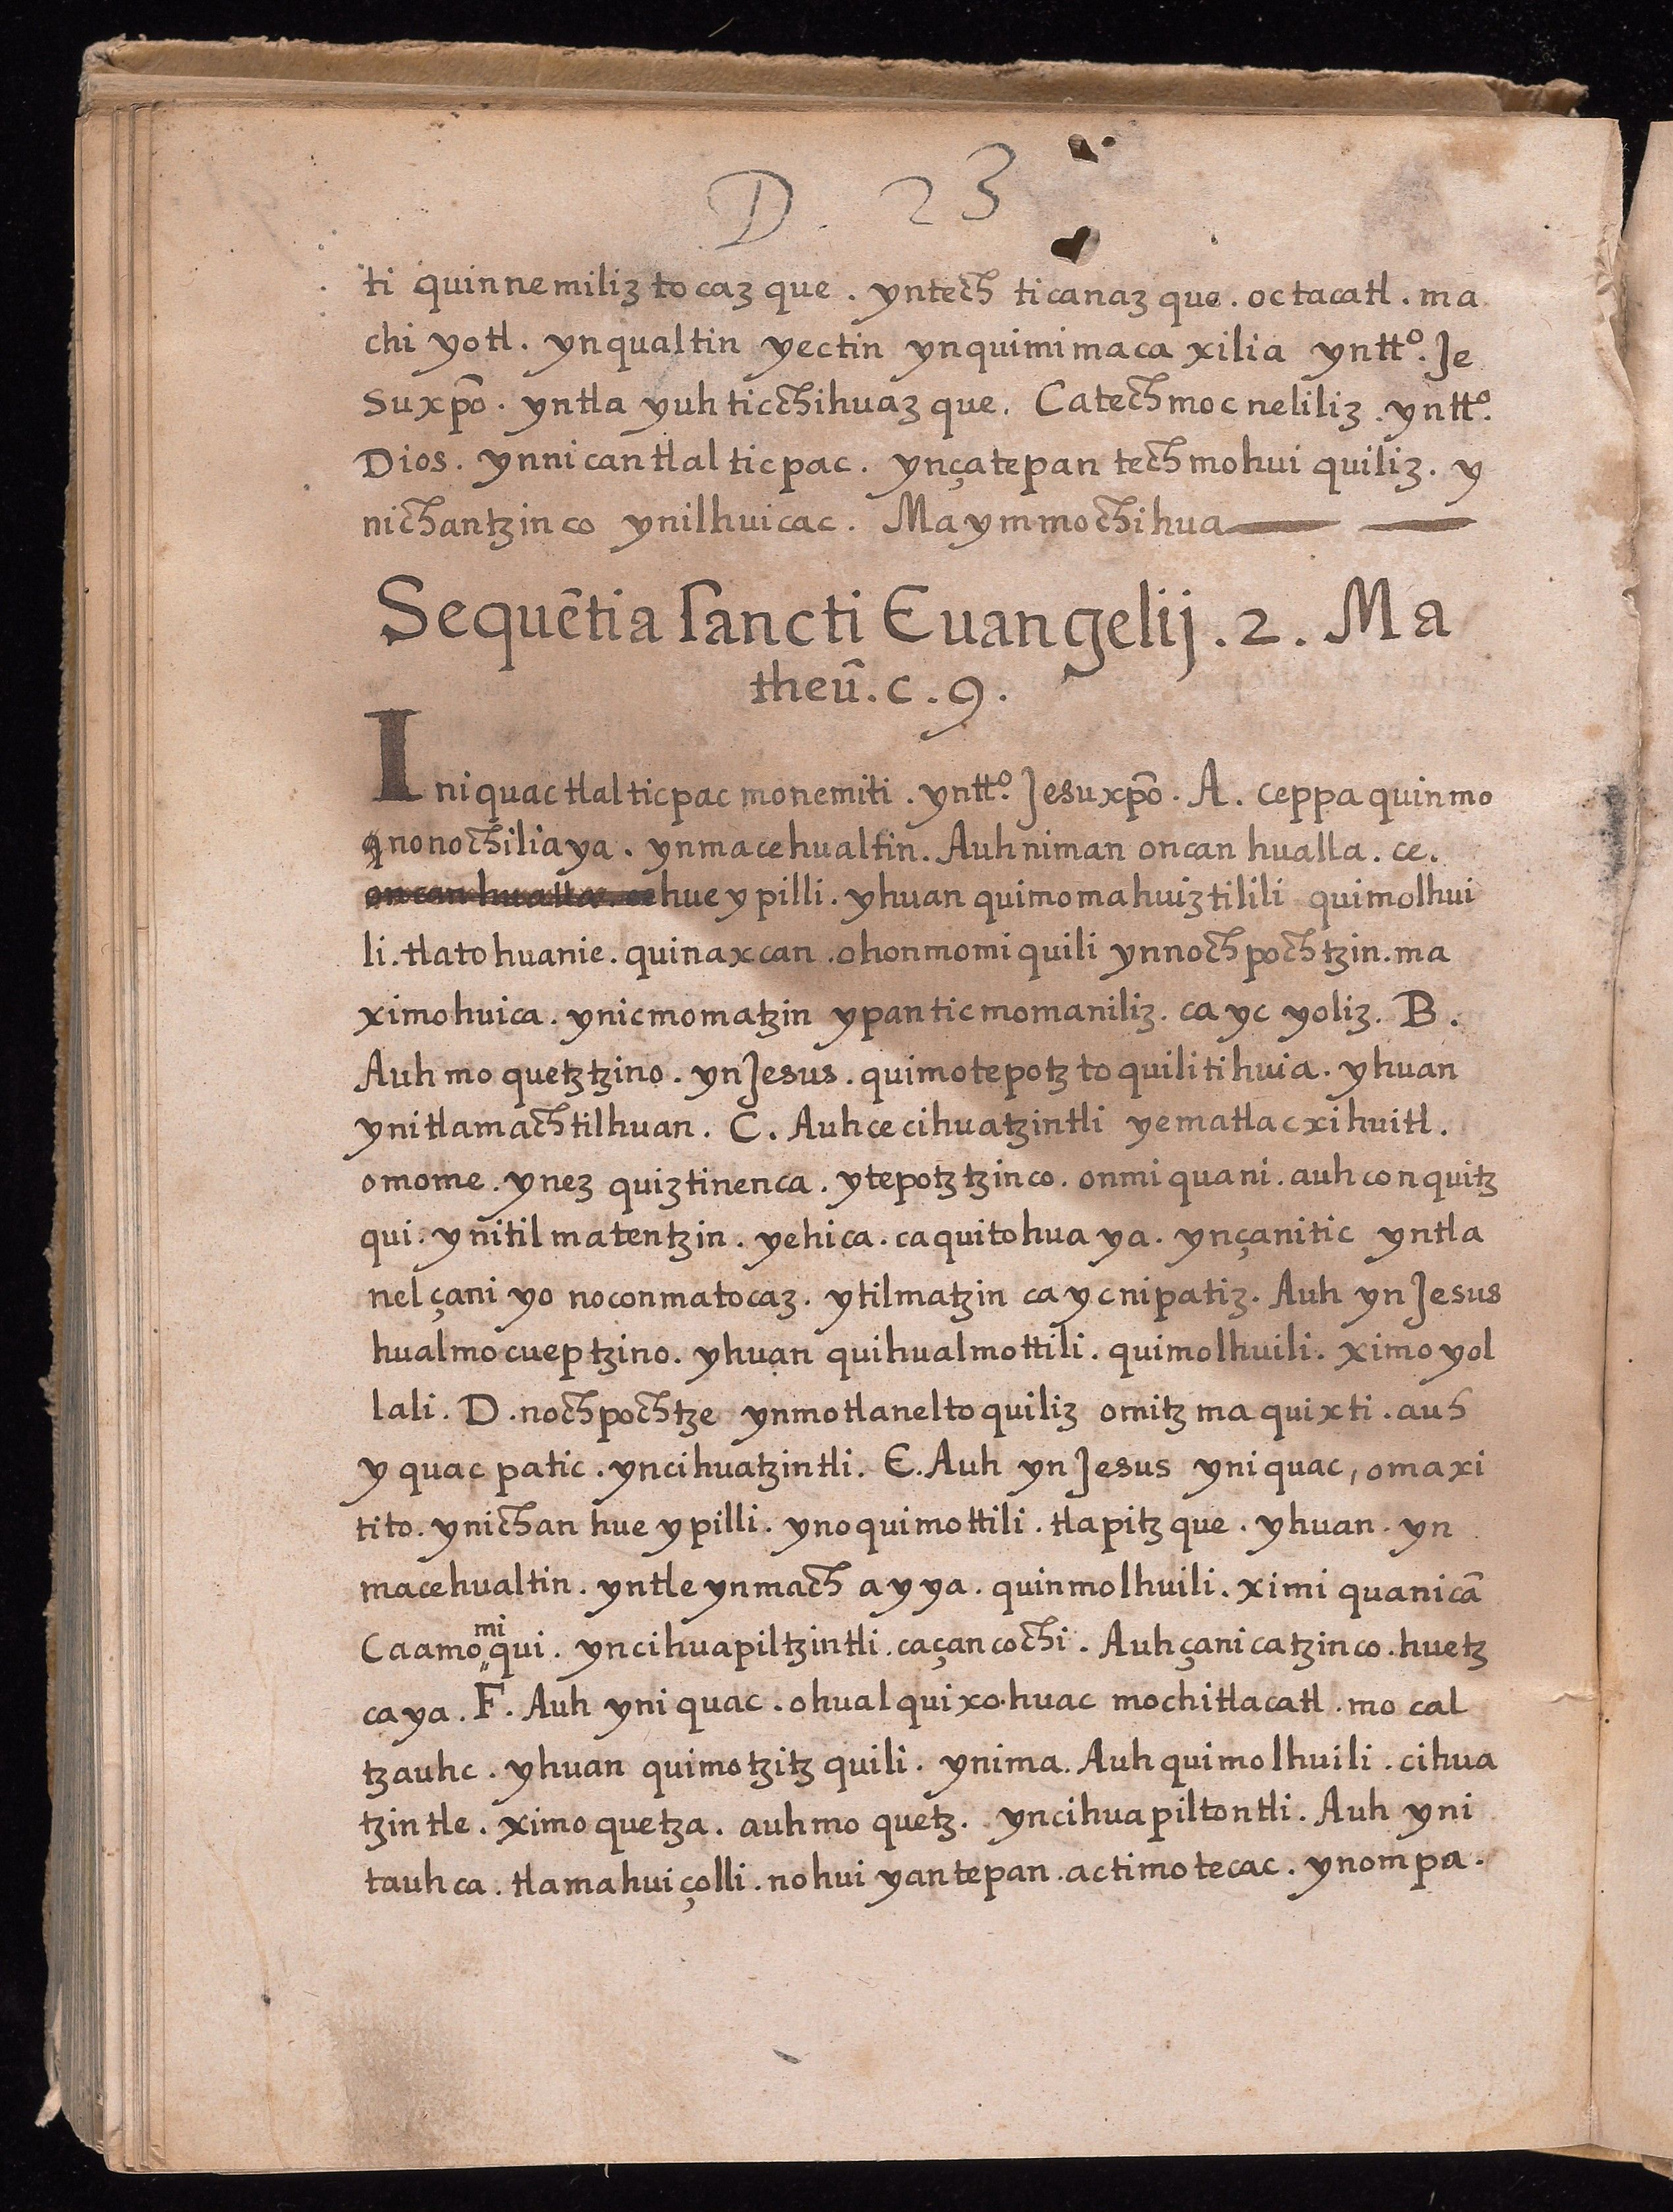 D. 23
ti quinnemiliz tocaz que. yntech ticanaz que. octacatl. ma
chi yotl. ynqualtin yectin ynquimimaca xilia yntt̶o. Je
suxp̄o. yntla yuh ticchihuaz que. Catechmoc neliliz. yntt̶o.
Dios. ynni can tlal ticpac. ynçatepan techmohui quiliz. y
nichantzin co ynilhuicac. Ma ymmochihua
Sequētia sancti Euangelij. 2. Ma
theū. c. 9.
Iniquac tlalticpac monemiti. yntt̶o. Jesuxp̄o. A. ceppa quinmo
nonochiliaya. ynmacehualtin. Auh niman oncan hualla. ce.
oncan hualla. ce hue y pilli. yhuan quimomahuiztilili quimolhui
li. tlatohuanie. quinaxcan. ohonmomi quili ynnochpochtzin. ma
ximohuica. ynicmomatzin ypan ticmomaniliz. ca yc yoliz. B.
Auh mo quetztzino. ynJesus. quimotepotz to quilitihuia. yhuan
ynitlamachtilhuan. C. Auh ce cihuatzintli yematlac xihuitl.
omome. ynez quiztinenca. ytepotztzinco. onmi quani. auh conquitz
qui. ynitilmatentzin. yehica. ca quitohua ya. ynçanitic yntla
nel çani yo noconmatocaz. ytilmatzin ca yc nipatiz. Auh ynJesus
hualmocueptzino. yhuan quihualmottili. quimolhuili. ximo yol
lali. D. nochpochtze ynmotlaneltoquiliz omitz ma quixti. auh
y quac patic. yncihuatzintli. E. Auh ynJesus yniquac, omaxi
tito. ynichan hue ypilli. ynoquimottili. tlapitz que. yhuan. yn
macehualtin. yntle ynmach ayya. quinmolhuili. ximi quanicā
Ca amo miqui. yncihuapiltzintli. ca çan cochi. Auh çanicatzinco. huetz
caya. F. Auh yniquac. ohual quixo. huac mochitlacatl. mo cal
tzauhc. yhuan quimotzitz quili. ynima. Auh quimolhuili. cihua
tzintle. ximo quetza. auh mo quetz. yncihuapiltontli. Auh yni
tauhca. tlamahuiçolli. nohui yantepan. actimotecac. ynompa.